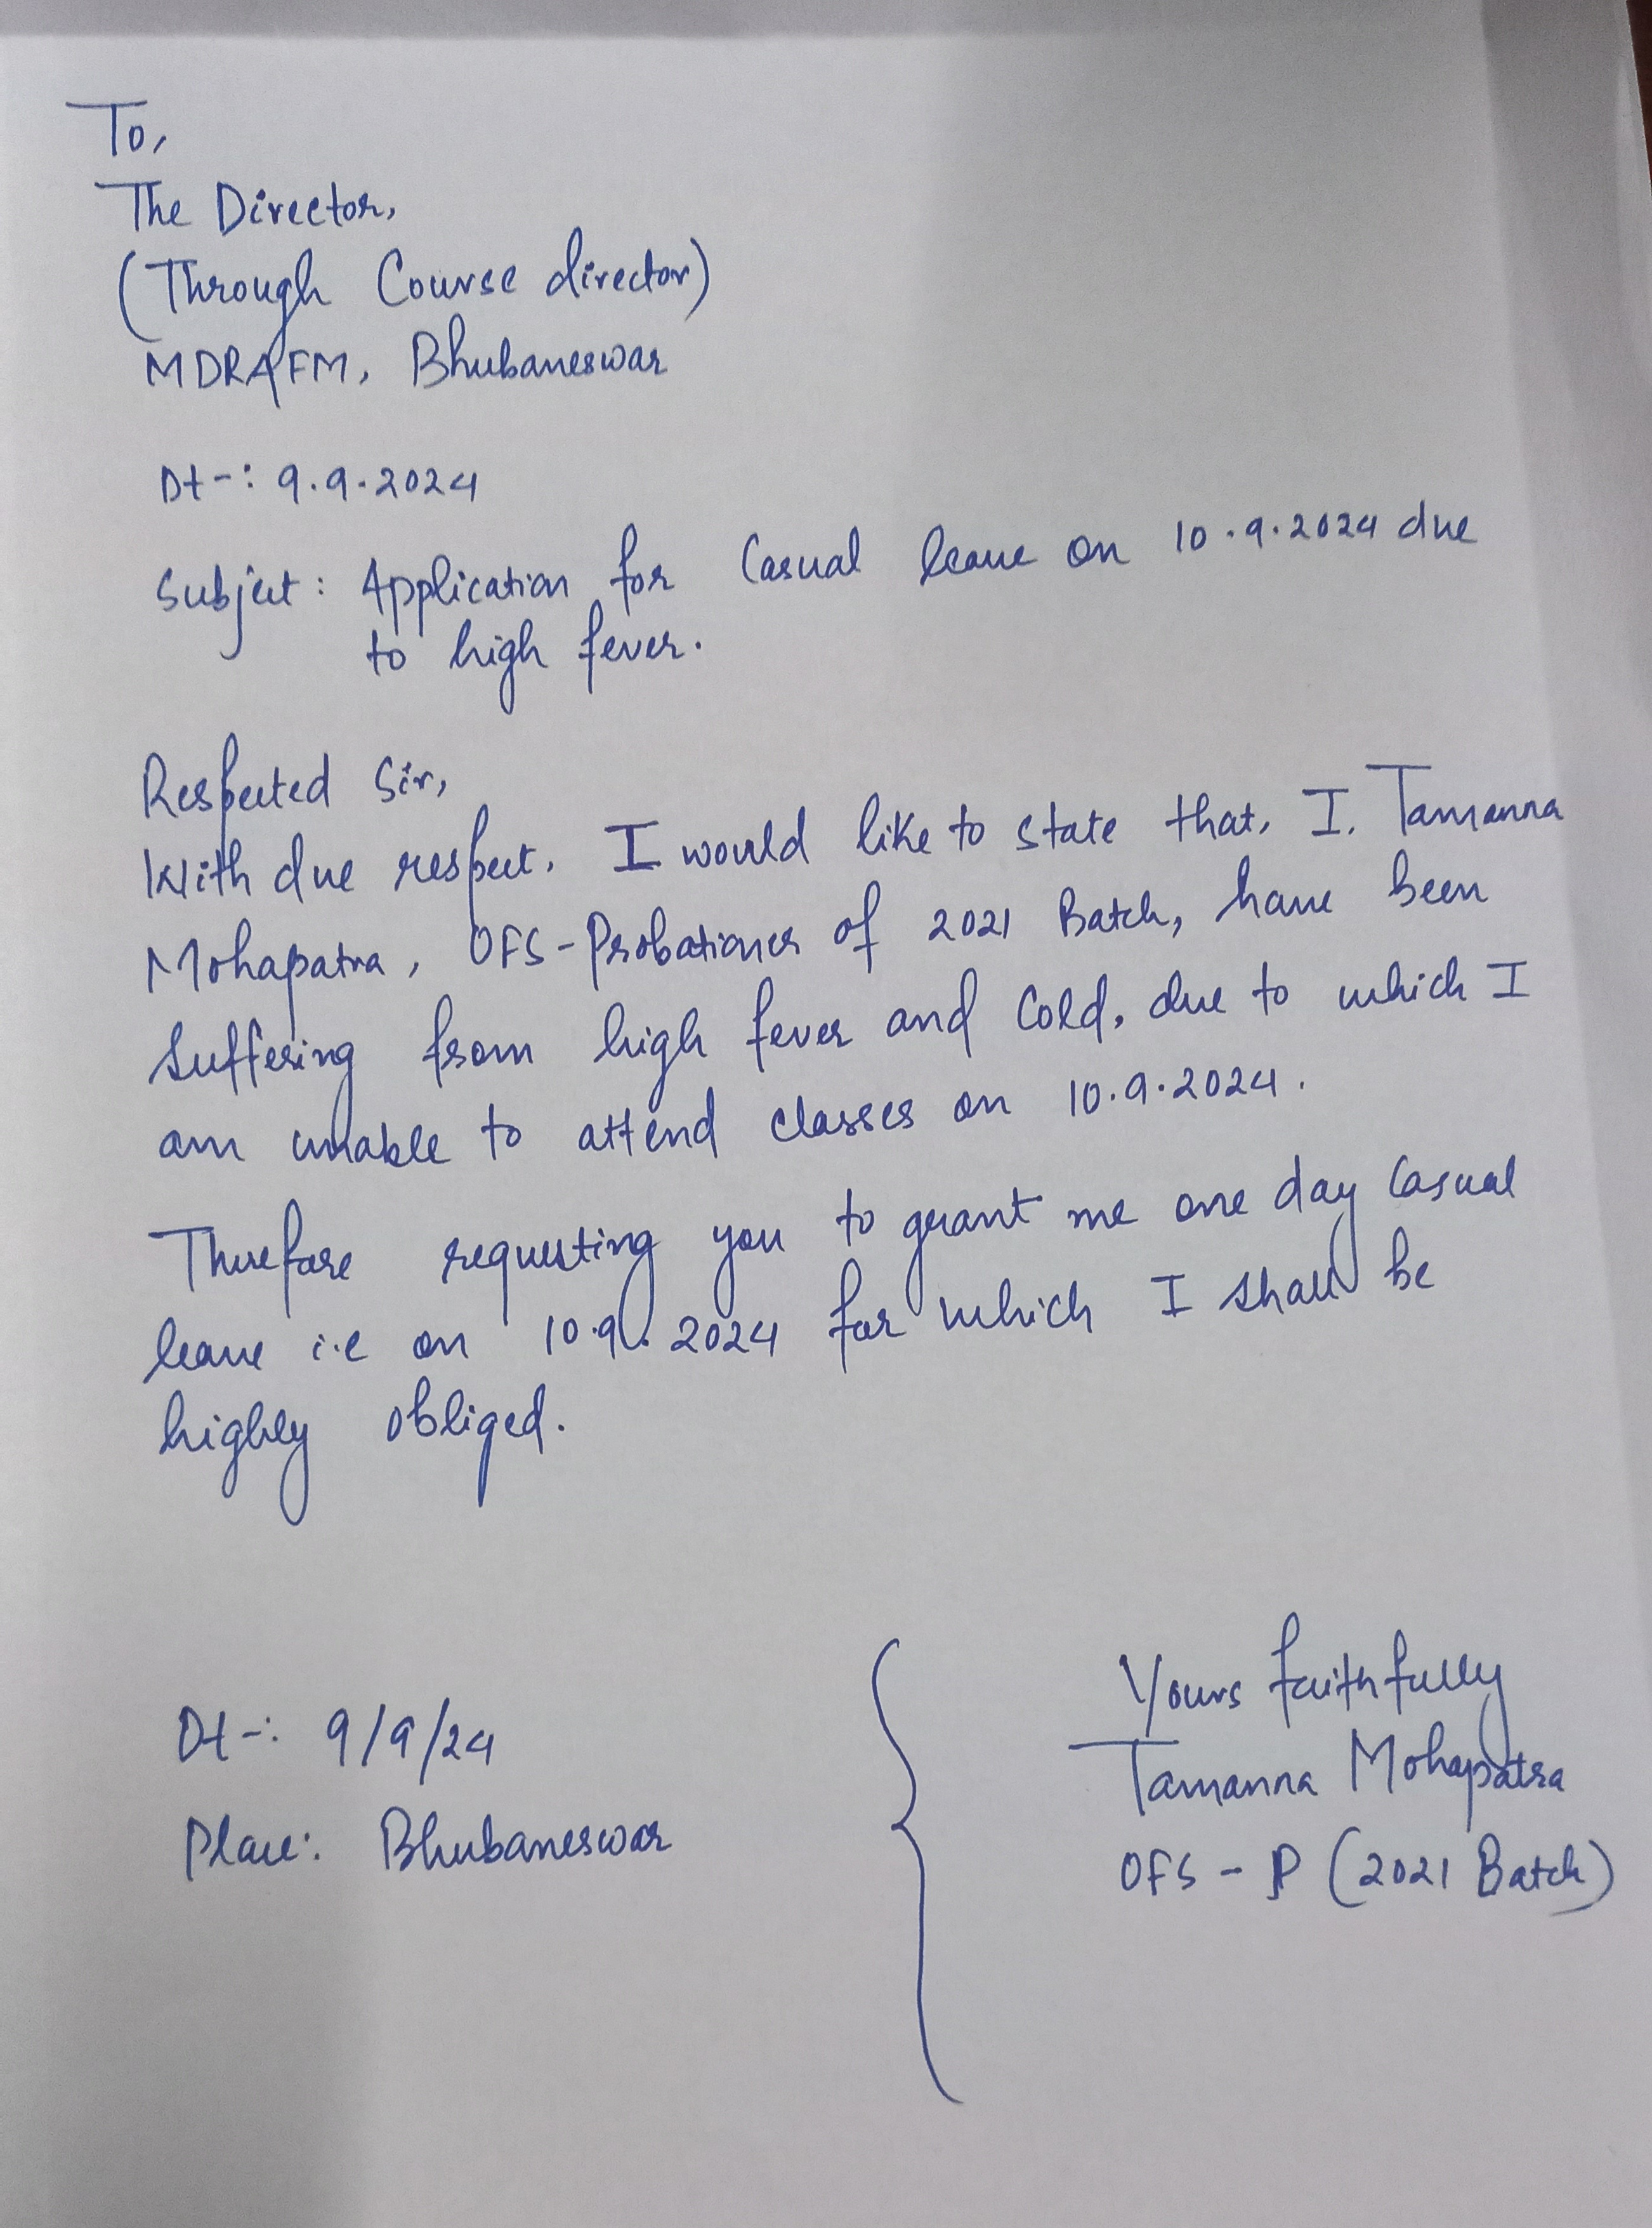 To,
The Director,
(Through Course director)
MDRAFM, Bhubaneswar
Dt-: 9.9.2024
Subject: Application for Casual leave on 10.9.2024 due
to high fever.
Respected Sir,
With due respect, I would like to state that, I, Tamanna
Mohapatra, OFS-Probationer of 2021 Batch, have been
suffering from high fever and Cold, due to which I
am unable to attend classes on 10.9.2024.
Therefore requesting you to grant me one day Casual
leave i.e on 10.9.2024 for which I shall be
highly obliged.
Dt-: 9/9/24
Place: Bhubaneswar
Yours faithfully
Tamanna Mohapatra
OFS - P (2021 Batch)